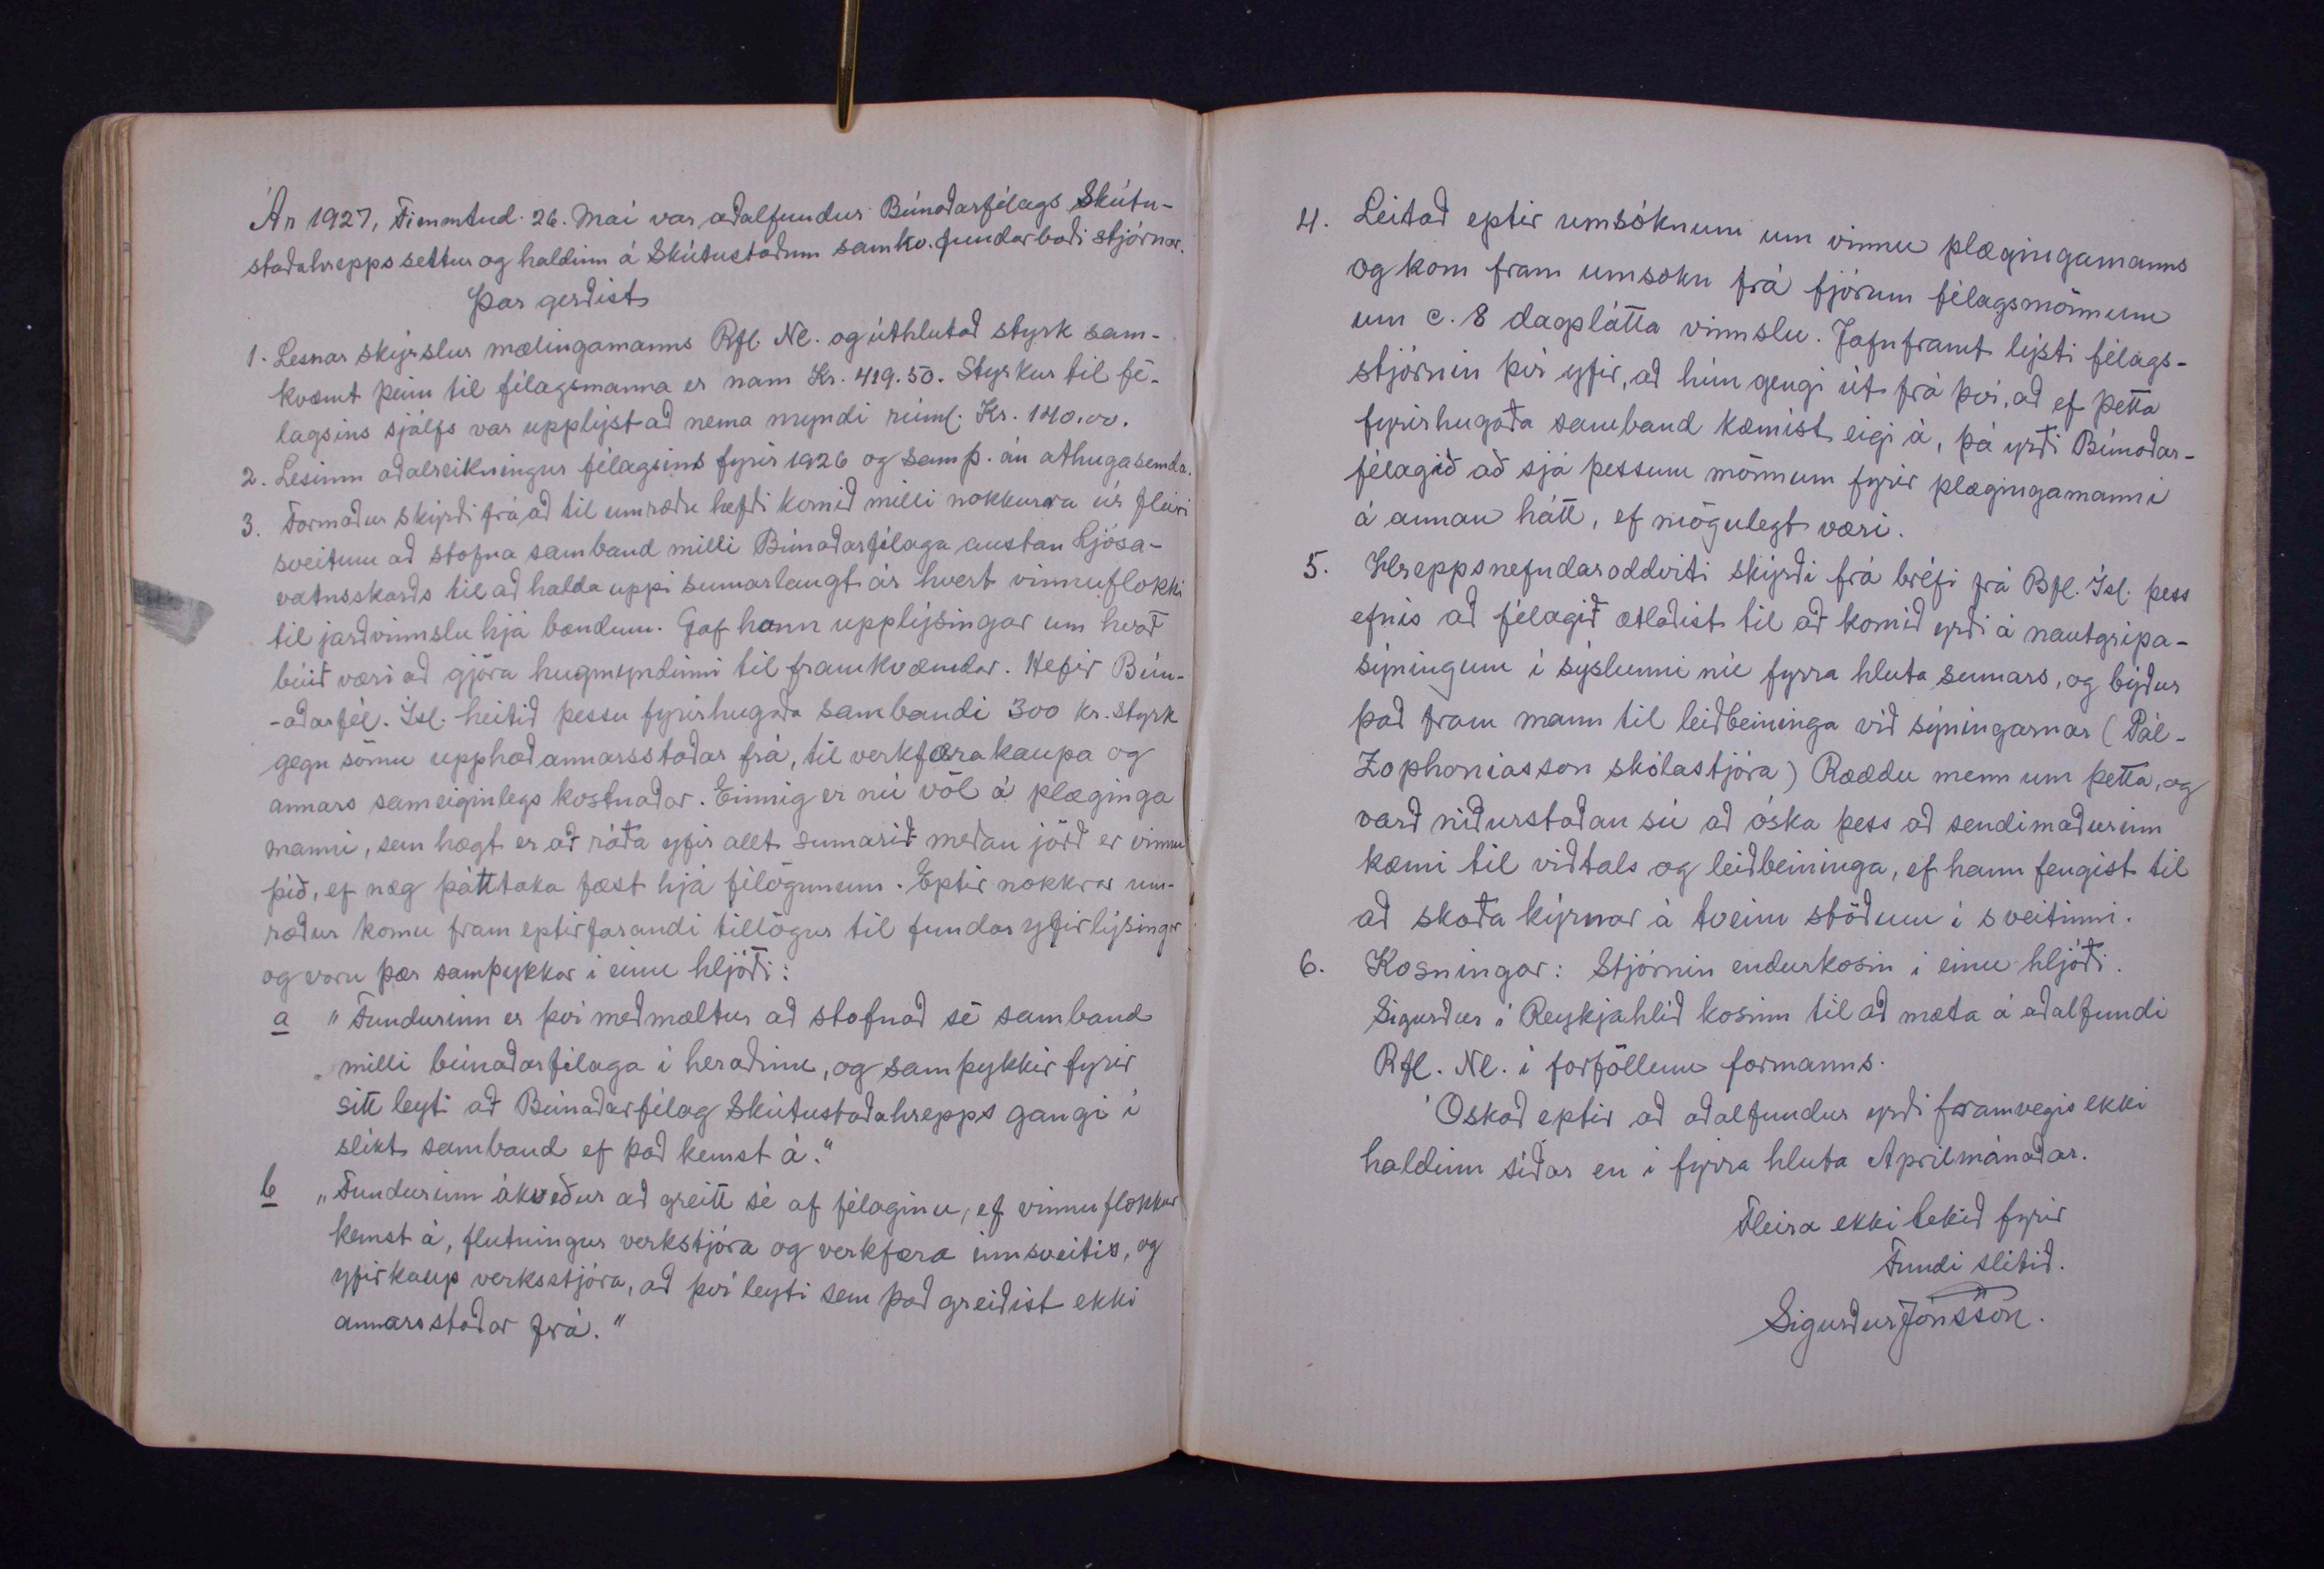 Ár 1927, Fimmtud. 26. Maí var aðalfundur Búnaðarfélags Skútu-
staðahrepps settur og haldinn á Skútustöðum samkv. fundarboði stjórnar.
Þar gerðist
1. Lesnar skýrslur mælingamanns Rfl. Nl. og úthlutað styrk sam-
kvæmt þeim til félagsmanna er nam Kr. 419.50. Styrkur til fé-
lagsins sjálfs var upplýst að nema myndi rúml. Kr. 140.00.
2. Lesinn aðalreikningur félagsins fyrir 1926 og samþ. án athugasemda.
3. Formaður skýrði frá að til umræðu hefði komið milli nokkurra úr fleiri
sveitum að stofna samband milli Búnaðarfélaga austan Ljósa-
vatnsskarðs til að halda uppi sumarlangt ár hvert vinnuflokki
til jarðvinnslu hjá bændum. Gaf hann upplýsingar um hvað
búið væri að gjöra hugmyndinni til framkvæmdar. Hefir Bún-
-aðarfél. Ísl. heitið þessu fyrirhugaða sambandi 300 kr. styrk
gegn sömu upphæð annarsstaðar frá, til verkfærakaupa og
annars sameiginlegs kostnaðar. Einnig er nú völ á plæginga
manni, sem hægt er að ráða yfir allt sumarið meðan jörð er vinnu
þíð, ef næg þátttaka fæst hjá félögunum. Eptir nokkrar um-
ræður komu fram eptirfarandi tillögur til fundar yfirlýsingar
og voru þær samþykkar í einu hljóði:
a "Fundurinn er því meðmæltur að stofnað sé samband
milli búnaðarfélaga í heraðinu, og samþykkir fyrir
sitt leyti að Búnaðarfélag Skútustaðahrepps gangi í
slíkt samband ef það kemst á."
b "Fundurinn ákveður að greitt sé af félaginu, ef vinnuflokkur
kemst á, flutningur verkstjóra og verkfæra innsveitis, og
yfirkaup verksstjóra, að því leyti sem það greiðist ekki
annarsstaðar frá."
4. Leitað eptir umsóknum um vinnu plægingamanns
og kom fram umsókn frá fjórum félagsmönnum
um c. 8 dagslátta vinnslu. Jafnframt lýsti félags-
stjórnin því yfir, að hún gengi út frá því, að ef þetta
fyrirhugaða samband kæmist eigi á, þá yrði Búnaðar-
félagið að sjá þessum mönnum fyrir plægingamanni
á annan hátt, ef mögulegt væri.
5. Hreppsnefndaroddviti skýrði frá bréfi frá Bfl. Ísl. þess
efnis að félagið ætlaðist til að komið yrði á nautgripa-
sýningum í sýslunni nú fyrra hluta sumars, og býður
það fram mann til leiðbeininga við sýningarnar (Pál-
Zophoníasson skólastjóra) Ræddu menn um þetta, og
varð niðurstaðan sú að óska þess að sendimaðurinn
kæmi til viðtals og leiðbeininga, ef hann fengist til
að skoða kýrnar á tveim stöðum í sveitinni.
6. Kosningar: Stjórnin endurkosin í einu hljóði.
Sigurður í Reykjahlíð kosinn til að mæta á aðalfundi
Rfl. Nl. í forföllum formanns.
Óskað eptir að aðalfundur yrði framvegis ekki
haldinn síðar en í fyrra hluta Aprílmánaðar.
Fleira ekki tekið fyrir
Fundi slitið.
Sigurður Jónsson.